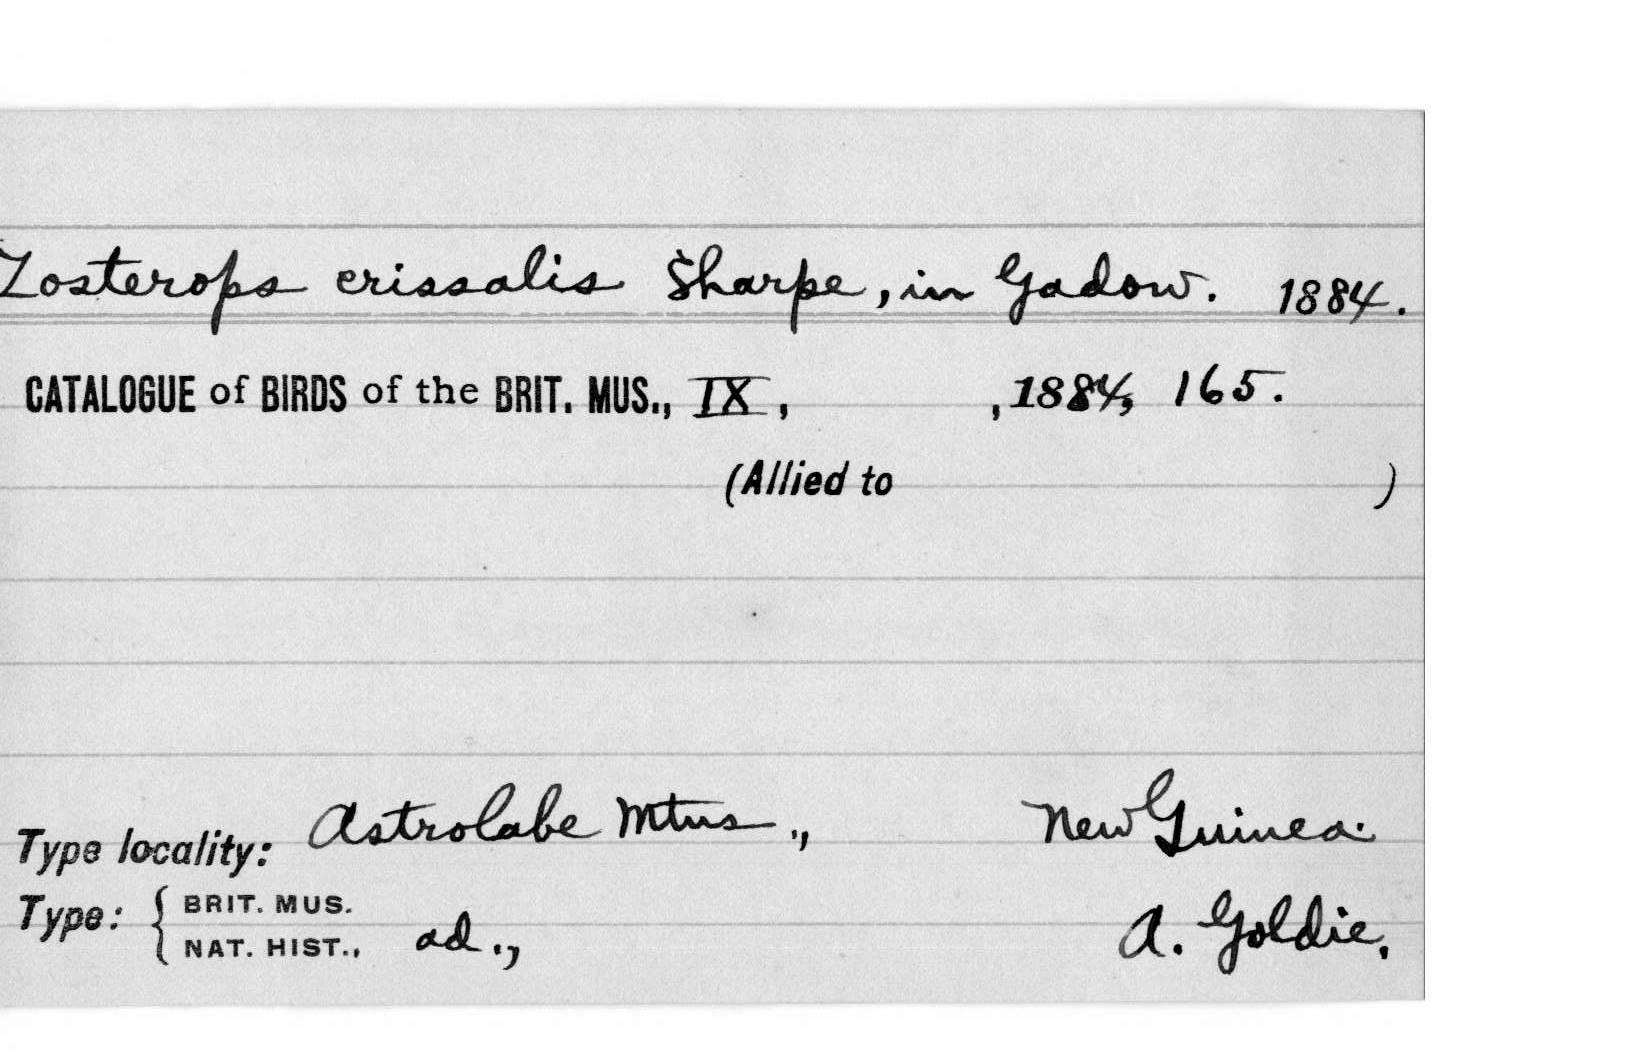 Zosterops crissalis Sharpe, in Gadow. 1884.
CATALOGUE of BIRDS of the BRIT. MUS., IX, , 1884, 165.
(Allied to )
Type locality: Astrolabe Mtns., New Guinea.
Type: { BRIT. MUS.
NAT. HIST., ad., A. Goldie.